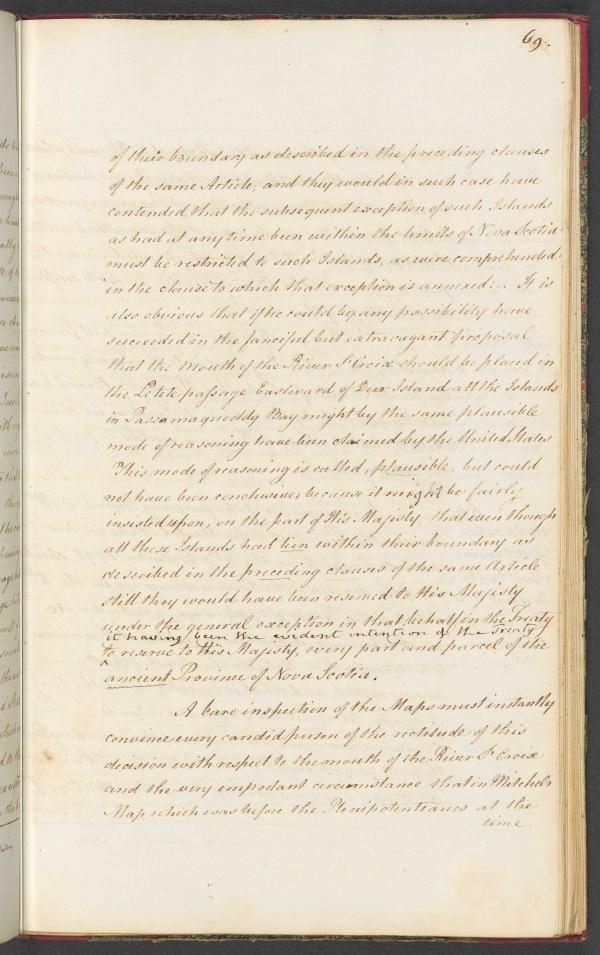 69.
of their boundary as described in the preceding clauses
of the same Article, and they would in such case have
contended that the subsequent exception of such Islands
as had at any time been within the limits of Nova Scotia
must be restricted to such Islands, as were comprehended
in the clause to which that exception is annexed:. It is
also obvious that if he could by any possibility have
succeeded in the fanciful but extravagant proposal
that the Mouth of the River St Croix should be placed in
the Letete passage Eastward of Deer Island all the Islands
in Passamaquoddy Bay might by the same plausible
mode of reasoning have been claimed by the United States
This mode of reasoning is called, plausible, but could
not have been conclusive, because it might be fairly
insisted upon, on the part of His Majesty, that even though
all these Islands had been within their boundary as
described in the preceding clauses of the same Article
still they would have been reserved to His Majesty
under the general exception in that behalf in the Treaty
it having been the evident intention of the Treaty
to reserve to His Majesty, every part and parcel of the
ancient Province of Nova Scotia.
A bare inspection of the Maps must instantly
convince every candid person of the rectitude of this
decision with respect to the mouth of the River St Croix
and the very important circumstance that in Mitchels
Map which was before the Plenipotentiaries at the
time